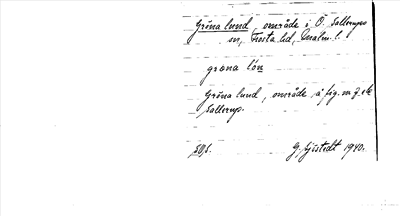 Gröna lund, område i Ö. Sallerups
sn, Frosta hd, Malm. l.
grøna lón
Gröna lund, område å fig. m J. etc
Sallerup.
50,5. G. Sjöstedt 1940.